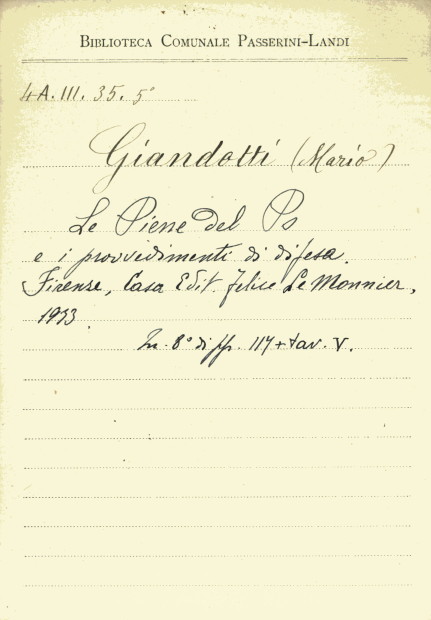 BIBLIOTECA COMUNALE PASSERINI-LANDI
4A.III.35.5°
Giandotti (Mario)
Le Piene del Po
e i provvedimenti di difesa.
Firenze, Casa Edit. Felice Le Monnier,
1933.
In. 8° di pp. 114 + tav. V.